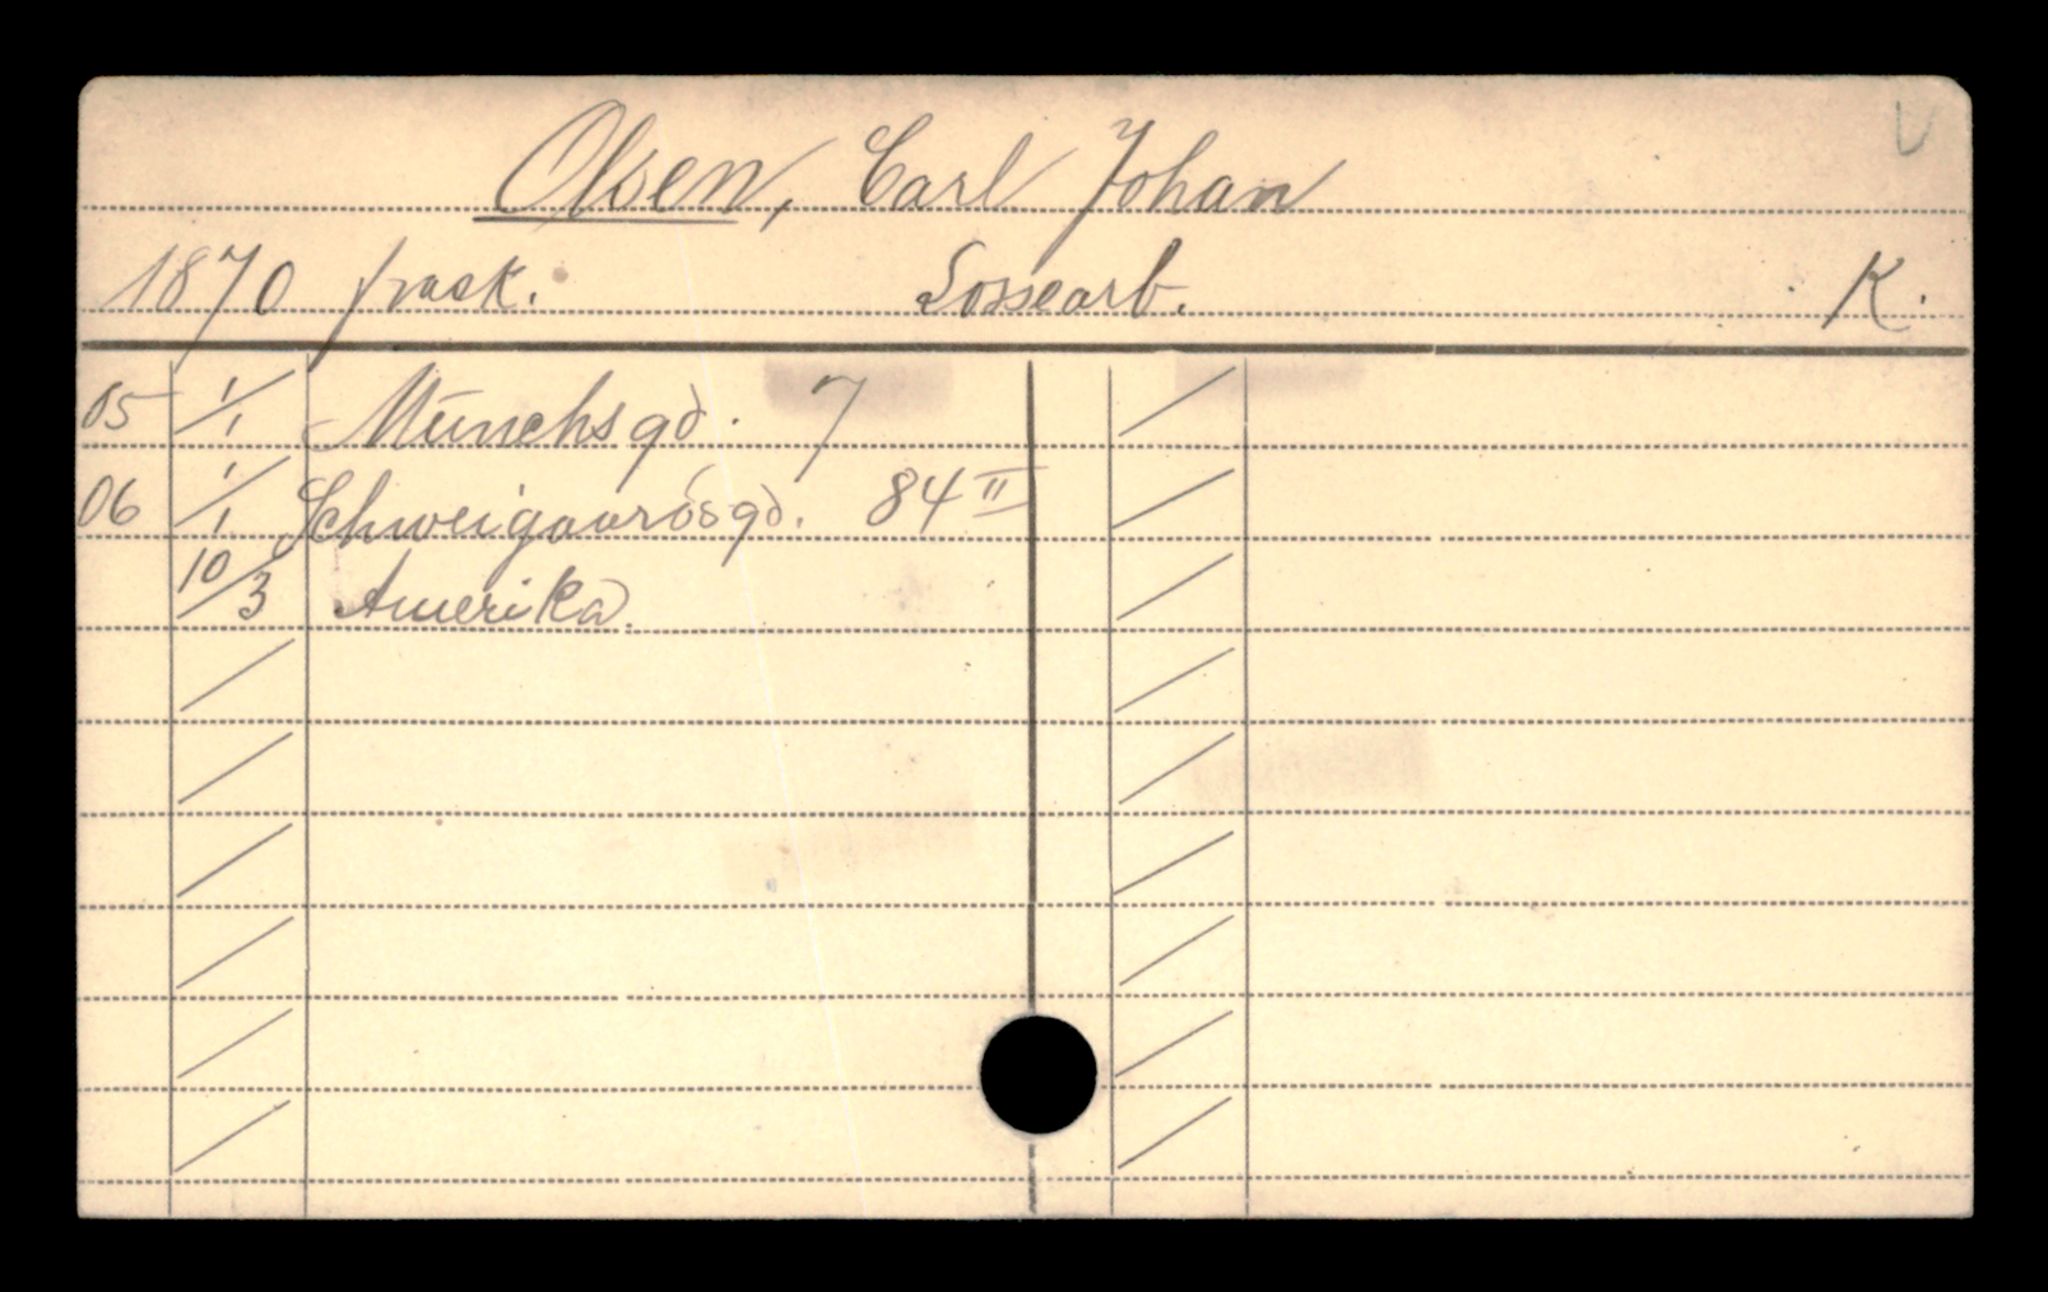 V
Olsen, Carl Johan
1870 frask. Lossearb. K.
05 1/1 Munchsgd. 7
06 1/1 Schweigaardsgd. 84 II
10/3 Amerika.